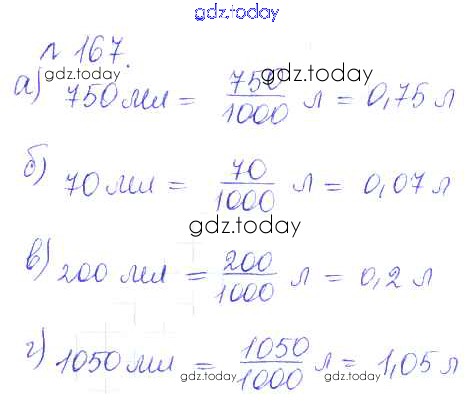 gdz.today
№ 167.
gdz.today gdz.today
а) 750 мл = 750/1000 л = 0,75 л
б) 70 мл = 70/1000 л = 0,07 л
gdz.today
в) 200 мл = 200/1000 л = 0,2 л
г) 1050 мл = 1050/1000 л = 1,05 л
gdz.today gdz.today